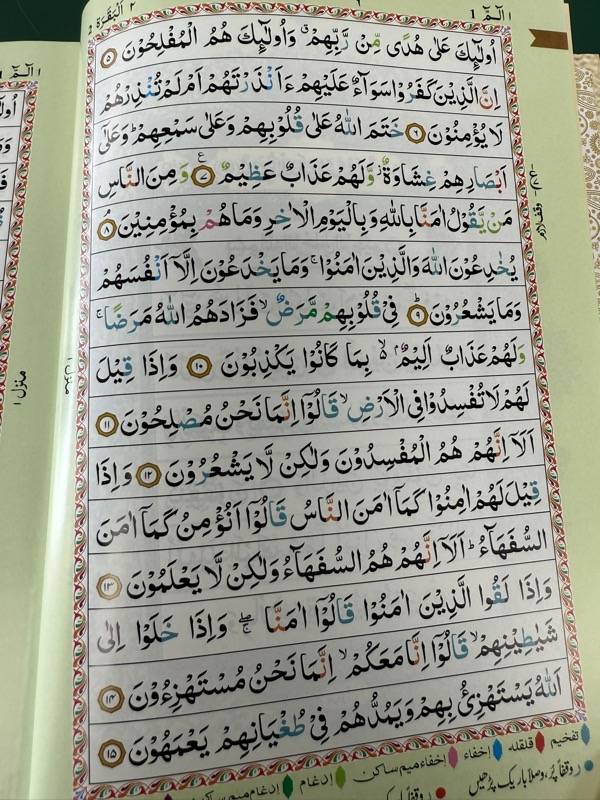 البقرة ٢
الٓمّٓ ١
اُولٰٓئِكَ عَلٰى هُدًى مِّنْ رَّبِّهِمْ ۗ وَاُولٰٓئِكَ هُمُ الْمُفْلِحُوْنَ ۝٥
اِنَّ الَّذِيْنَ كَفَرُوْا سَوَآءٌ عَلَيْهِمْ ءَاَنْذَرْتَهُمْ اَمْ لَمْ تُنْذِرْهُمْ
لَا يُؤْمِنُوْنَ ۝٦ خَتَمَ اللّٰهُ عَلٰى قُلُوْبِهِمْ وَعَلٰى سَمْعِهِمْ ؕ وَعَلٰٓى
اَبْصَارِهِمْ غِشَاوَةٌ ؗ وَّلَهُمْ عَذَابٌ عَظِيْمٌ ۝٧ وَمِنَ النَّاسِ
مَنْ يَّقُوْلُ اٰمَنَّا بِاللّٰهِ وَبِالْيَوْمِ الْاٰخِرِ وَمَا هُمْ بِمُؤْمِنِيْنَ ۝٨
يُخٰدِعُوْنَ اللّٰهَ وَالَّذِيْنَ اٰمَنُوْا ۚ وَمَا يَخْدَعُوْنَ اِلَّاۤ اَنْفُسَهُمْ
وَمَا يَشْعُرُوْنَ ۝٩ فِيْ قُلُوْبِهِمْ مَّرَضٌ ۙ فَزَادَهُمُ اللّٰهُ مَرَضًا ۚ
وَلَهُمْ عَذَابٌ اَلِيْمٌ ۙ۬ بِمَا كَانُوْا يَكْذِبُوْنَ ۝١٠ وَاِذَا قِيْلَ
لَهُمْ لَا تُفْسِدُوْا فِى الْاَرْضِ ۙ قَالُوْٓا اِنَّمَا نَحْنُ مُصْلِحُوْنَ ۝١١
اَلَاۤ اِنَّهُمْ هُمُ الْمُفْسِدُوْنَ وَلٰكِنْ لَّا يَشْعُرُوْنَ ۝١٢ وَاِذَا
قِيْلَ لَهُمْ اٰمِنُوْا كَمَاۤ اٰمَنَ النَّاسُ قَالُوْٓا اَنُؤْمِنُ كَمَاۤ اٰمَنَ
السُّفَهَآءُ ؕ اَلَاۤ اِنَّهُمْ هُمُ السُّفَهَآءُ وَلٰكِنْ لَّا يَعْلَمُوْنَ ۝١٣
وَاِذَا لَقُوا الَّذِيْنَ اٰمَنُوْا قَالُوْٓا اٰمَنَّا ۖۚ وَاِذَا خَلَوْا اِلٰى
شَيٰطِيْنِهِمْ ۙ قَالُوْٓا اِنَّا مَعَكُمْ ۙ اِنَّمَا نَحْنُ مُسْتَهْزِءُوْنَ ۝١٤
اَللّٰهُ يَسْتَهْزِئُ بِهِمْ وَيَمُدُّهُمْ فِيْ طُغْيَانِهِمْ يَعْمَهُوْنَ ۝١٥
وقف لازم
منزل ١
منزل ١
تفخیم قلقله إخفاء إخفاء میم ساکن إدغام إدغام میم ساکن
وقفاً پُر، وصلاً باریک پڑھیں